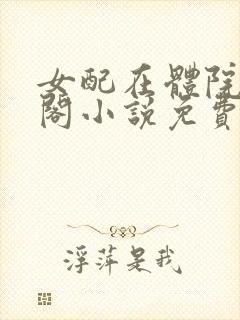 女配在體院
閣小說免費
浮萍是我